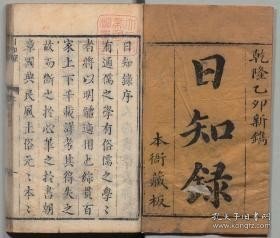 乾隆乙卯新鐫
日知錄
本衙藏板
日知錄序
有通儒之學有俗儒之學學
者將以明體適用也綜貫百
家上下千載詳考其得失之
故而斷之於心筆之於書朝
章國典民風土俗元元本本
孔夫子旧书网